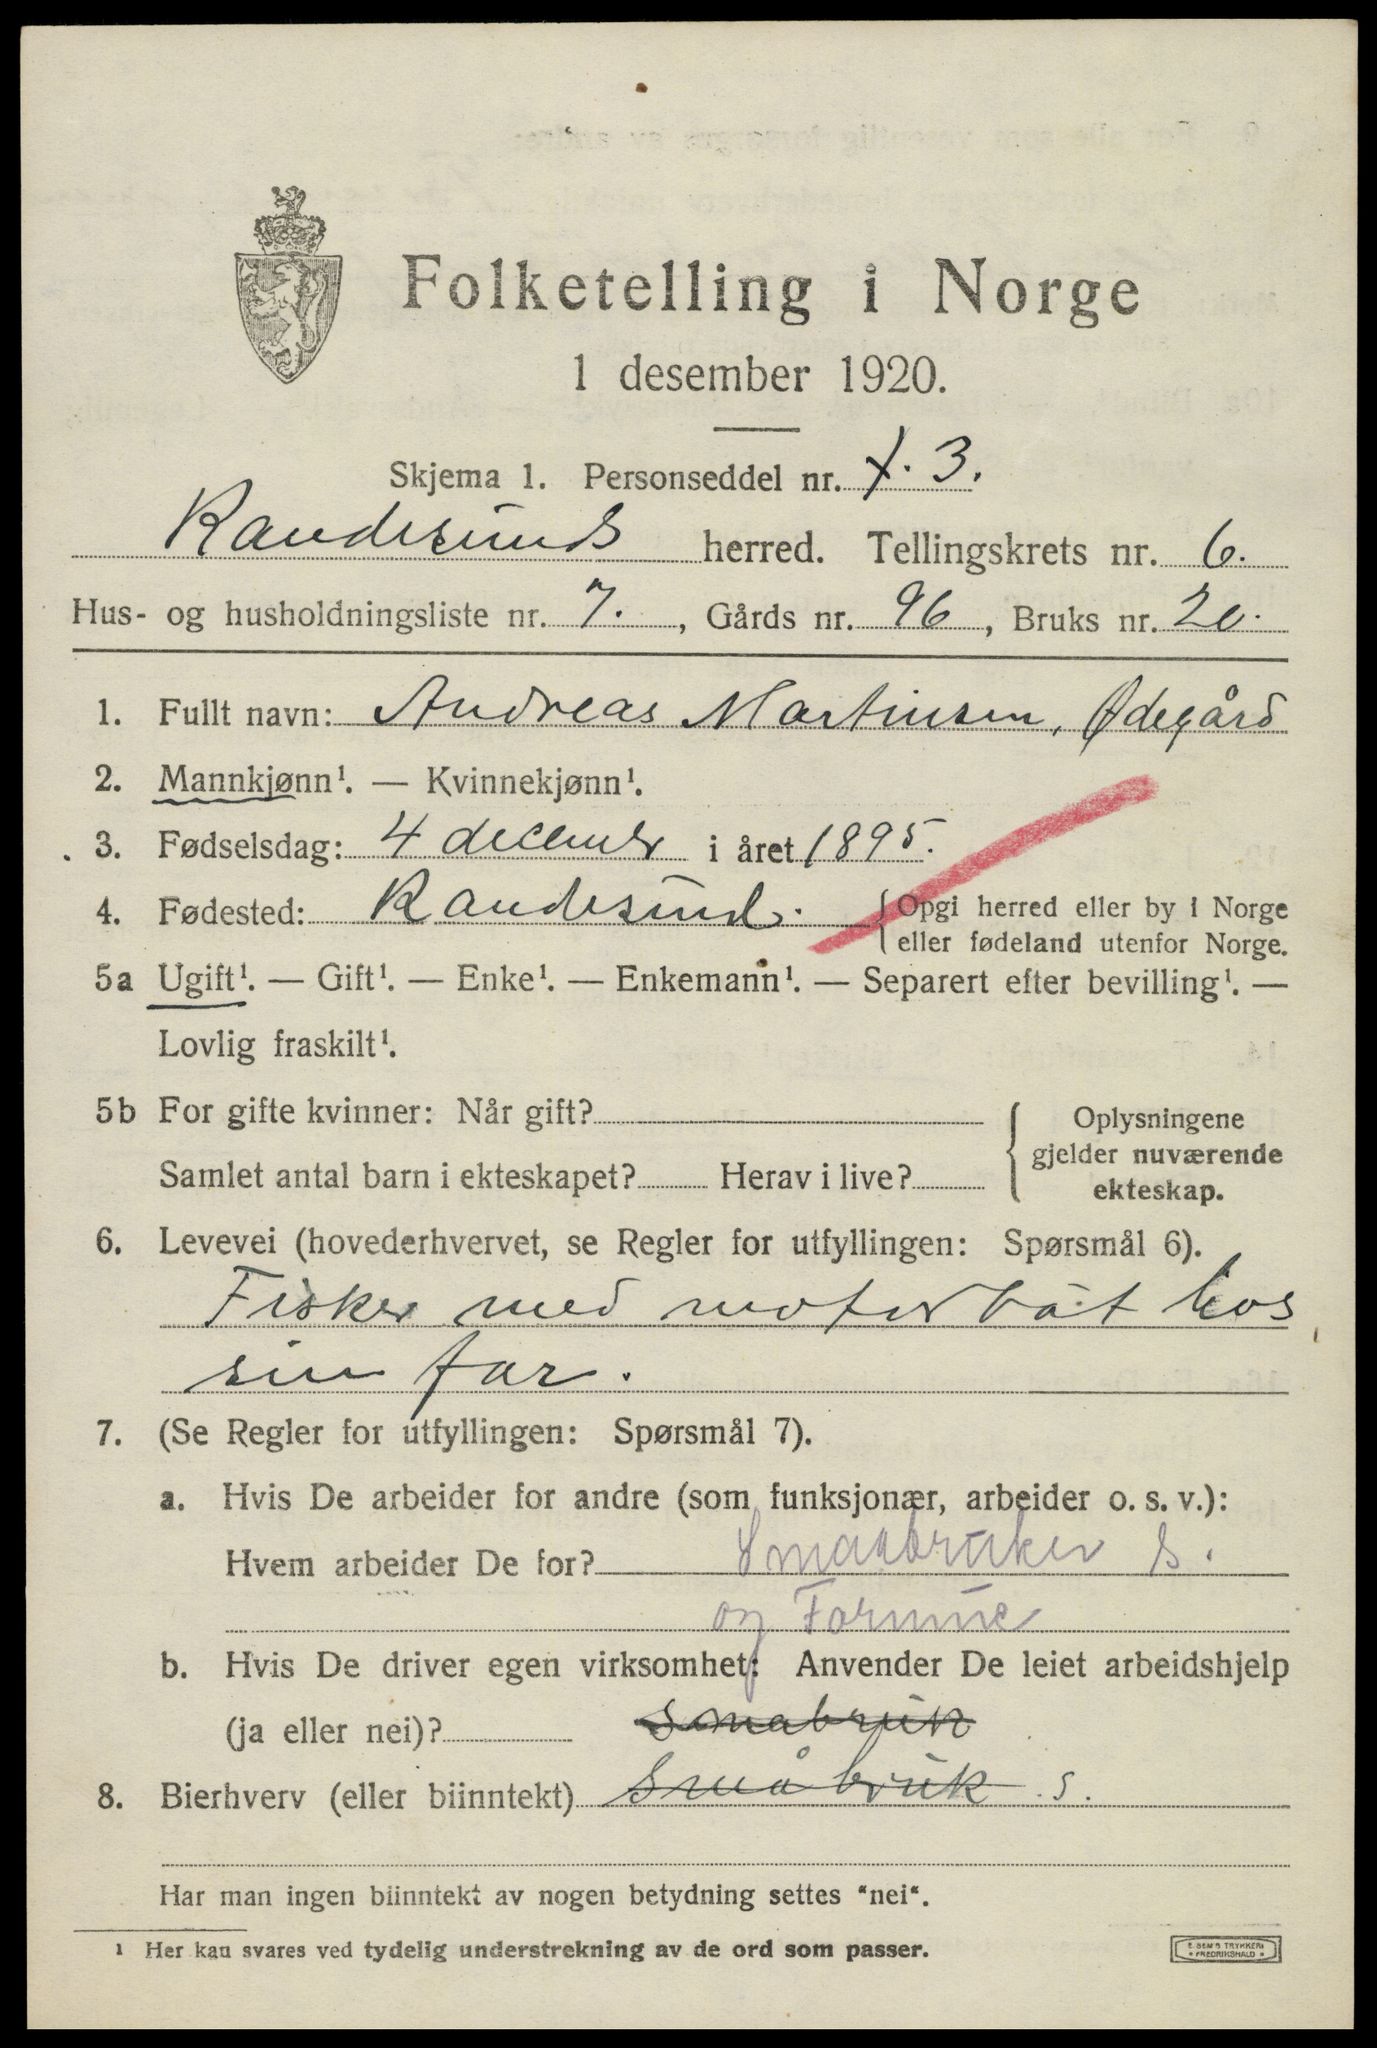 Folketelling i Norge
1 desember 1920.
Skjema 1. Personseddel nr. 3.
Randesunds herred. Tellingskrets nr. 6.
Hus- og husholdningsliste nr. 7., Gårds nr. 96, Bruks nr. 20.
1. Fullt navn: Andreas Martinsen, Ødegård
2. Mannkjønn¹. — Kvinnekjønn¹.
3. Fødselsdag: 4 december i året 1895.
4. Fødested: Randesund. { Opgi herred eller by i Norge
eller fødeland utenfor Norge.
5a Ugift¹. — Gift¹. — Enke¹. — Enkemann¹. — Separert efter bevilling¹. —
Lovlig fraskilt¹.
5b For gifte kvinner: Når gift?
Samlet antal barn i ekteskapet? Herav i live?
{ Oplysningene
gjelder nuværende
ekteskap.
6. Levevei (hovederhvervet, se Regler for utfyllingen: Spørsmål 6).
Fisker med motorbåt hos
sin far.
7. (Se Regler for utfyllingen: Spørsmål 7).
a. Hvis De arbeider for andre (som funksjonær, arbeider o. s. v.):
Hvem arbeider De for? Smaabruker s.
og
b. Hvis De driver egen virksomhet: Anvender De leiet arbeidshjelp
(ja eller nei)? smabruk
8. Bierhverv (eller biinntekt) småbruk s.
Har man ingen biinntekt av nogen betydning settes "nei".
¹ Her kan svares ved tydelig understrekning av de ord som passer.
E. SEM'S TRYKKERI
FREDRIKSHALD